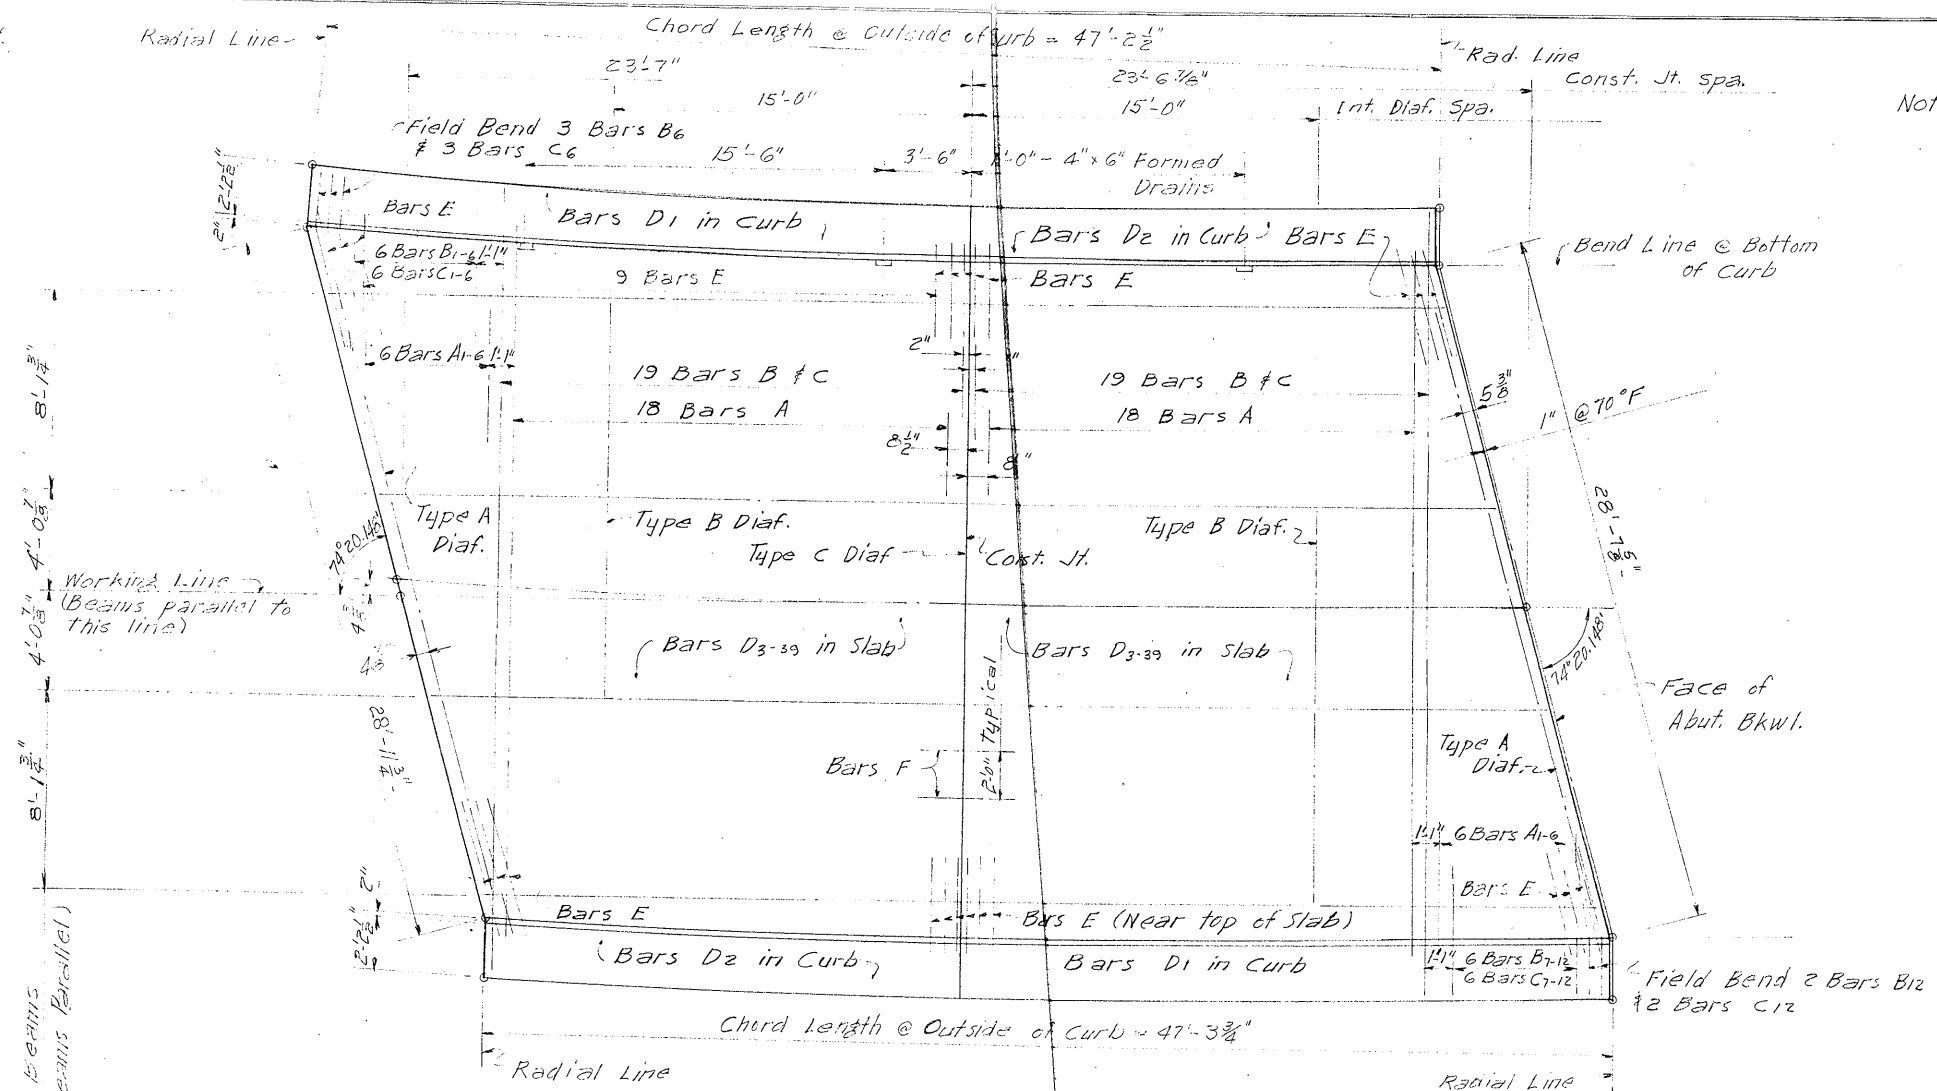 Radial Line
Chord Length @ Outside of Curb = 47'-2½"
Rad. Line
23'-7"
23'-6⅞"
Const. Jt. Spa.
15'-0"
15'-0"
Int. Diaf. Spa.
Not
Field Bend 3 Bars B6
& 3 Bars C6
15'-6"
3'-6"
4"x6" Formed
Drains
2'-2½"
2"
Bars E
Bars D1 in Curb
Bars D2 in Curb
Bars E
Bend Line @ Bottom
of Curb
6 Bars B1-6
1'-1"
6 Bars C1-6
9 Bars E
Bars E
8'-1¾"
6 Bars A1-6
1'-1"
2"
19 Bars B & C
18 Bars A
19 Bars B & C
18 Bars A
5⅜"
1" @ 70°F
8½"
Type A
Diaf.
Type B Diaf.
Type C Diaf
Const. Jt.
Type B Diaf.
28'-7⅝"
4'-0⅞"
74°20.148'
Working Line
(Beams parallel to
this line)
4'-0⅞"
Bars D3-39 in Slab
Bars D3-39 in Slab
74°20.148'
Face of
Abut. Bkwl.
28'-11¾"
8'-1¾"
Bars F
2'-0" Typical
Type A
Diaf.
1'-1"
6 Bars A1-6
Bars E
2"
2'-2½"
Bars E
Bars E (Near top of Slab)
Bars D2 in Curb
Bars D1 in Curb
1'-1"
6 Bars B7-12
6 Bars C7-12
Field Bend 2 Bars B12
& 2 Bars C12
Beams
Parallel)
Chord Length @ Outside of Curb = 47'-3¾"
Radial Line
Radial Line